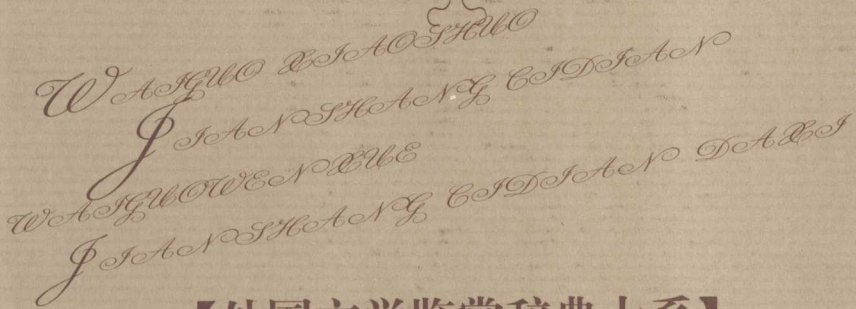 WAIGUO XIAOSHUO
JIANSHANG CIDIAN
WAIGUOWENXUE
JIANSHANG CIDIAN DAXI
【外国文学鉴赏辞典大系】